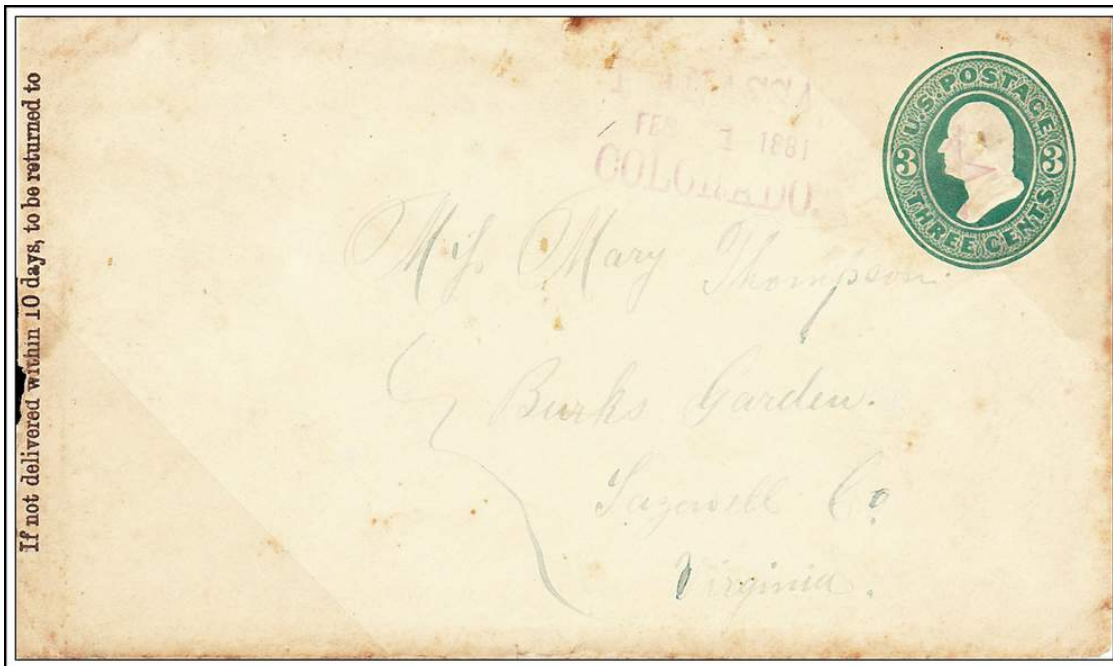 If not delivered within 10 days, to be returned to
1881
COLORADO.
U.S. POSTAGE
3 3
THREE CENTS
Miſs Mary Thompson.
Burks Garden.
Tazewell Co
Virginia.